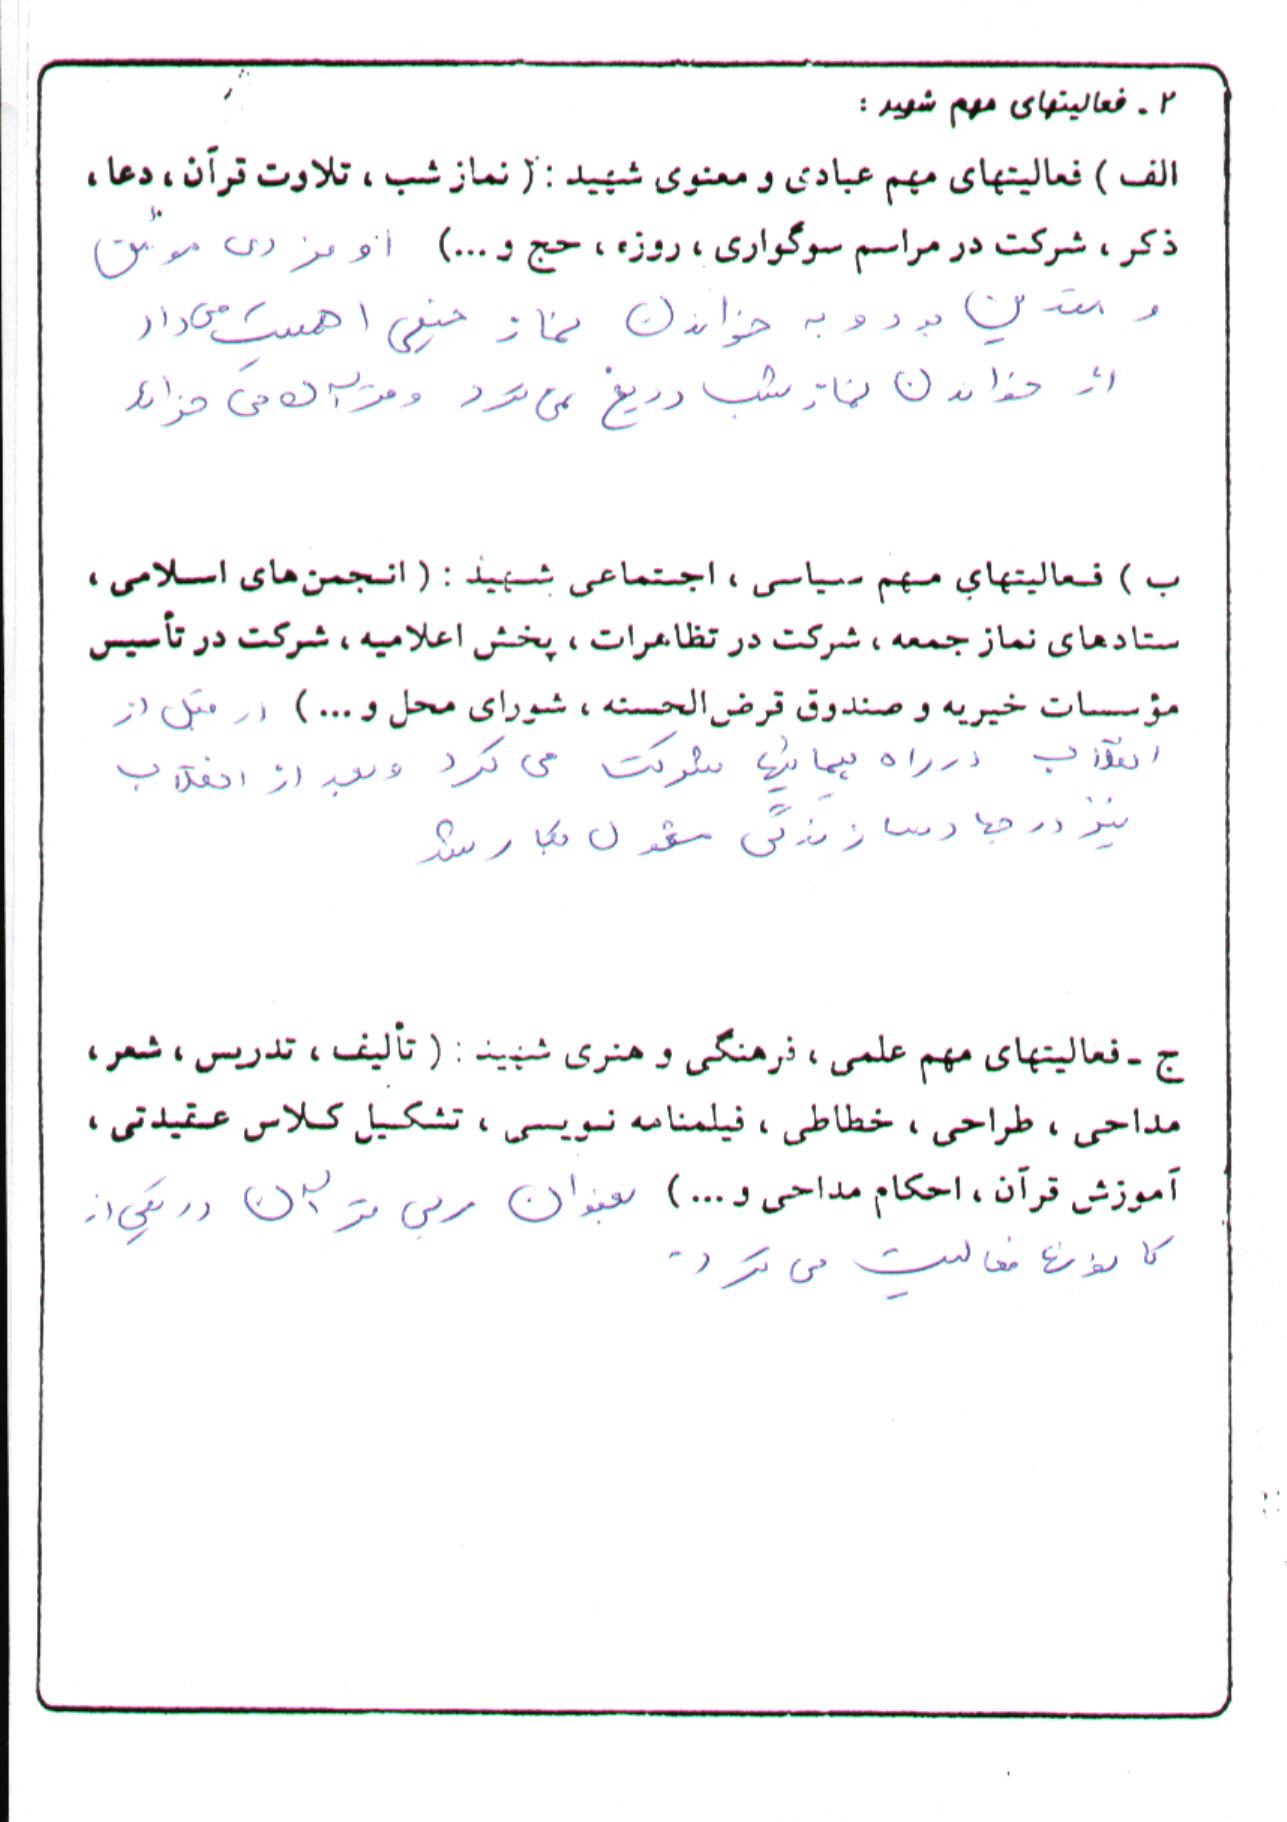 ۲ - فعالیتهای مهم شهید :
الف ) فعالیتهای مهم عبادی و معنوی شهید : ( نماز شب ، تلاوت قرآن ، دعا ،
ذکر ، شرکت در مراسم سوگواری ، روزه ، حج و ...) او فردی موثق
و متدین بود و به خواندن نماز خیلی اهمیت می‌داد
از خواندن نماز شب دریغ نمی‌کرد و قرآن می خواند
ب ) فعالیتهای مهم سیاسی ، اجتماعی شهید : ( انجمن‌های اسلامی ،
ستادهای نماز جمعه ، شرکت در تظاهرات ، پخش اعلامیه ، شرکت در تأسیس
مؤسسات خیریه و صندوق قرض‌الحسنه ، شورای محل و ... ) در قبل از
انقلاب در راه پیمائیها شرکت می کرد و بعد از انقلاب
نیز در جهاد سازندگی مشغول بکار شد
ج - فعالیتهای مهم علمی ، فرهنگی و هنری شهید : ( تألیف ، تدریس ، شعر ،
مداحی ، طراحی ، خطاطی ، فیلمنامه نویسی ، تشکیل کلاس عقیدتی ،
آموزش قرآن ، احکام مداحی و ... ) بعنوان مربی قرآن در یکی از
کانونها فعالیت می کرد.